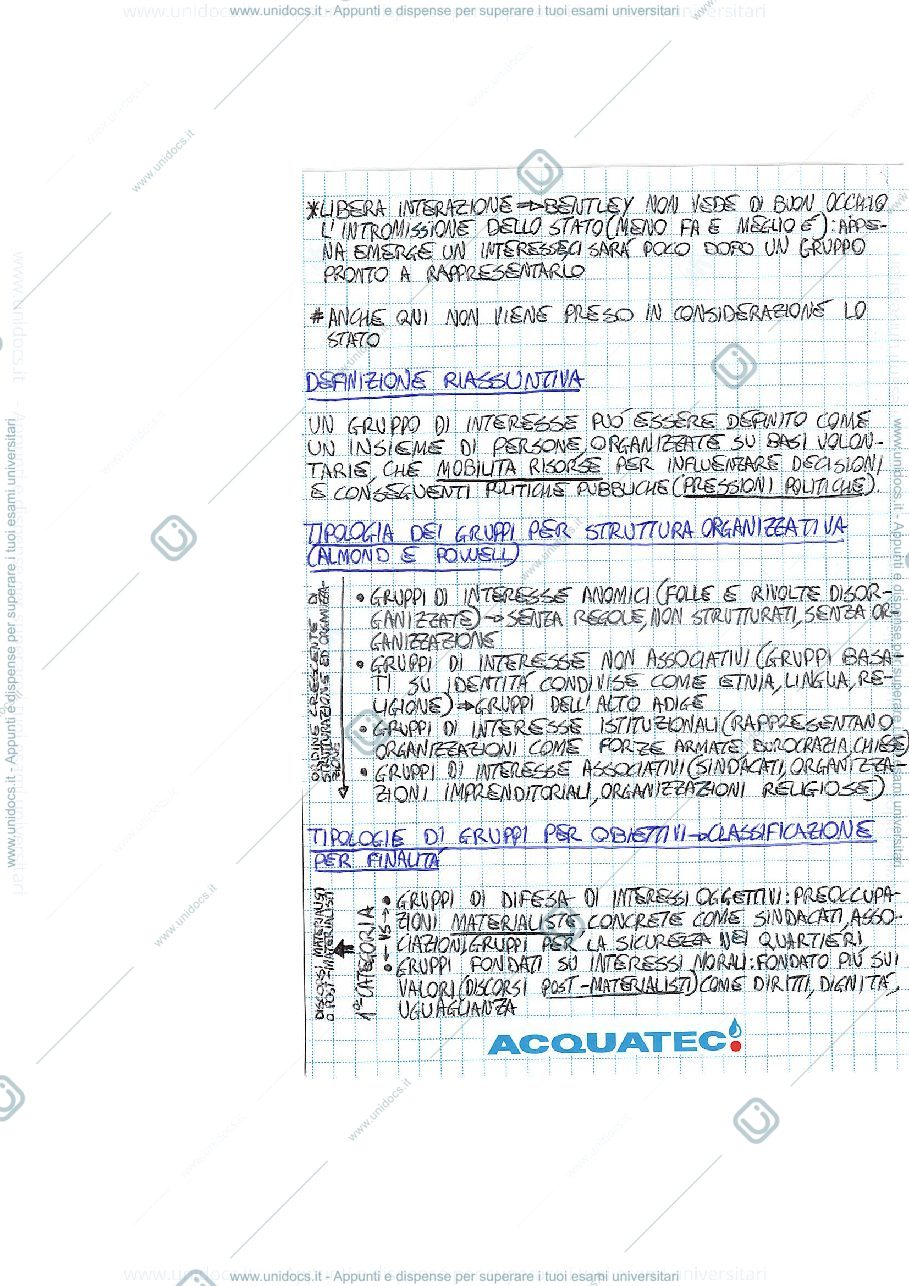 www.unidocs.it - Appunti e dispense per superare i tuoi esami universitari
*LIBERA INTERAZIONE → BENTLEY NON VEDE DI BUON OCCHIO
L'INTROMISSIONE DELLO STATO (MENO FA E MEGLIO È): APPE-
NA EMERGE UN INTERESSE, CI SARÁ POCO DOPO UN GRUPPO
PRONTO A RAPPRESENTARLO
# ANCHE QUI NON VIENE PRESO IN CONSIDERAZIONE LO
STATO
DEFINIZIONE RIASSUNTIVA
UN GRUPPO DI INTERESSE PUÓ ESSERE DEFINITO COME
UN INSIEME DI PERSONE, ORGANIZZATE SU BASI VOLON-
TARIE, CHE MOBILITA RISORSE PER INFLUENZARE DECISIONI
E CONSEGUENTI POLITICHE PUBBLICHE (PRESSIONI POLITICHE).
TIPOLOGIA DEI GRUPPI PER STRUTTURA ORGANIZZATIVA
(ALMOND E POWELL)
ORDINE CRESCENTE DI
STRUTTURAZIONE ED ORGANIZZA-
ZIONE
• GRUPPI DI INTERESSE ANOMICI (FOLLE E RIVOLTE DISOR-
GANIZZATE) → SENZA REGOLE, NON STRUTTURATI, SENZA OR-
GANIZZAZIONE
• GRUPPI DI INTERESSE NON ASSOCIATIVI (GRUPPI BASA-
TI SU IDENTITÁ CONDIVISE COME ETNIA, LINGUA, RE-
LIGIONE) → GRUPPI DELL'ALTO ADIGE
• GRUPPI DI INTERESSE ISTITUZIONALI (RAPPRESENTANO
ORGANIZZAZIONI COME FORZE ARMATE, BUROCRAZIA, CHIESE)
• GRUPPI DI INTERESSE ASSOCIATIVI (SINDACATI, ORGANIZZA-
ZIONI IMPRENDITORIALI, ORGANIZZAZIONI RELIGIOSE)
TIPOLOGIE DI GRUPPI PER OBIETTIVI → CLASSIFICAZIONE
PER FINALITÁ
DISCORSI MATERIALISTI
O POST-MATERIALISTI
1ª CATEGORIA
← VS →
• GRUPPI DI DIFESA DI INTERESSI OGGETTIVI: PREOCCUPA-
ZIONI MATERIALISTE CONCRETE COME SINDACATI, ASSO-
CIAZIONI, GRUPPI PER LA SICUREZZA NEI QUARTIERI
• GRUPPI FONDATI SU INTERESSI MORALI: FONDATO PIÚ SUI
VALORI (DISCORSI POST-MATERIALISTI) COME DIRITTI, DIGNITÁ,
UGUAGLIANZA
ACQUATEC
www.unidocs.it - Appunti e dispense per superare i tuoi esami universitari